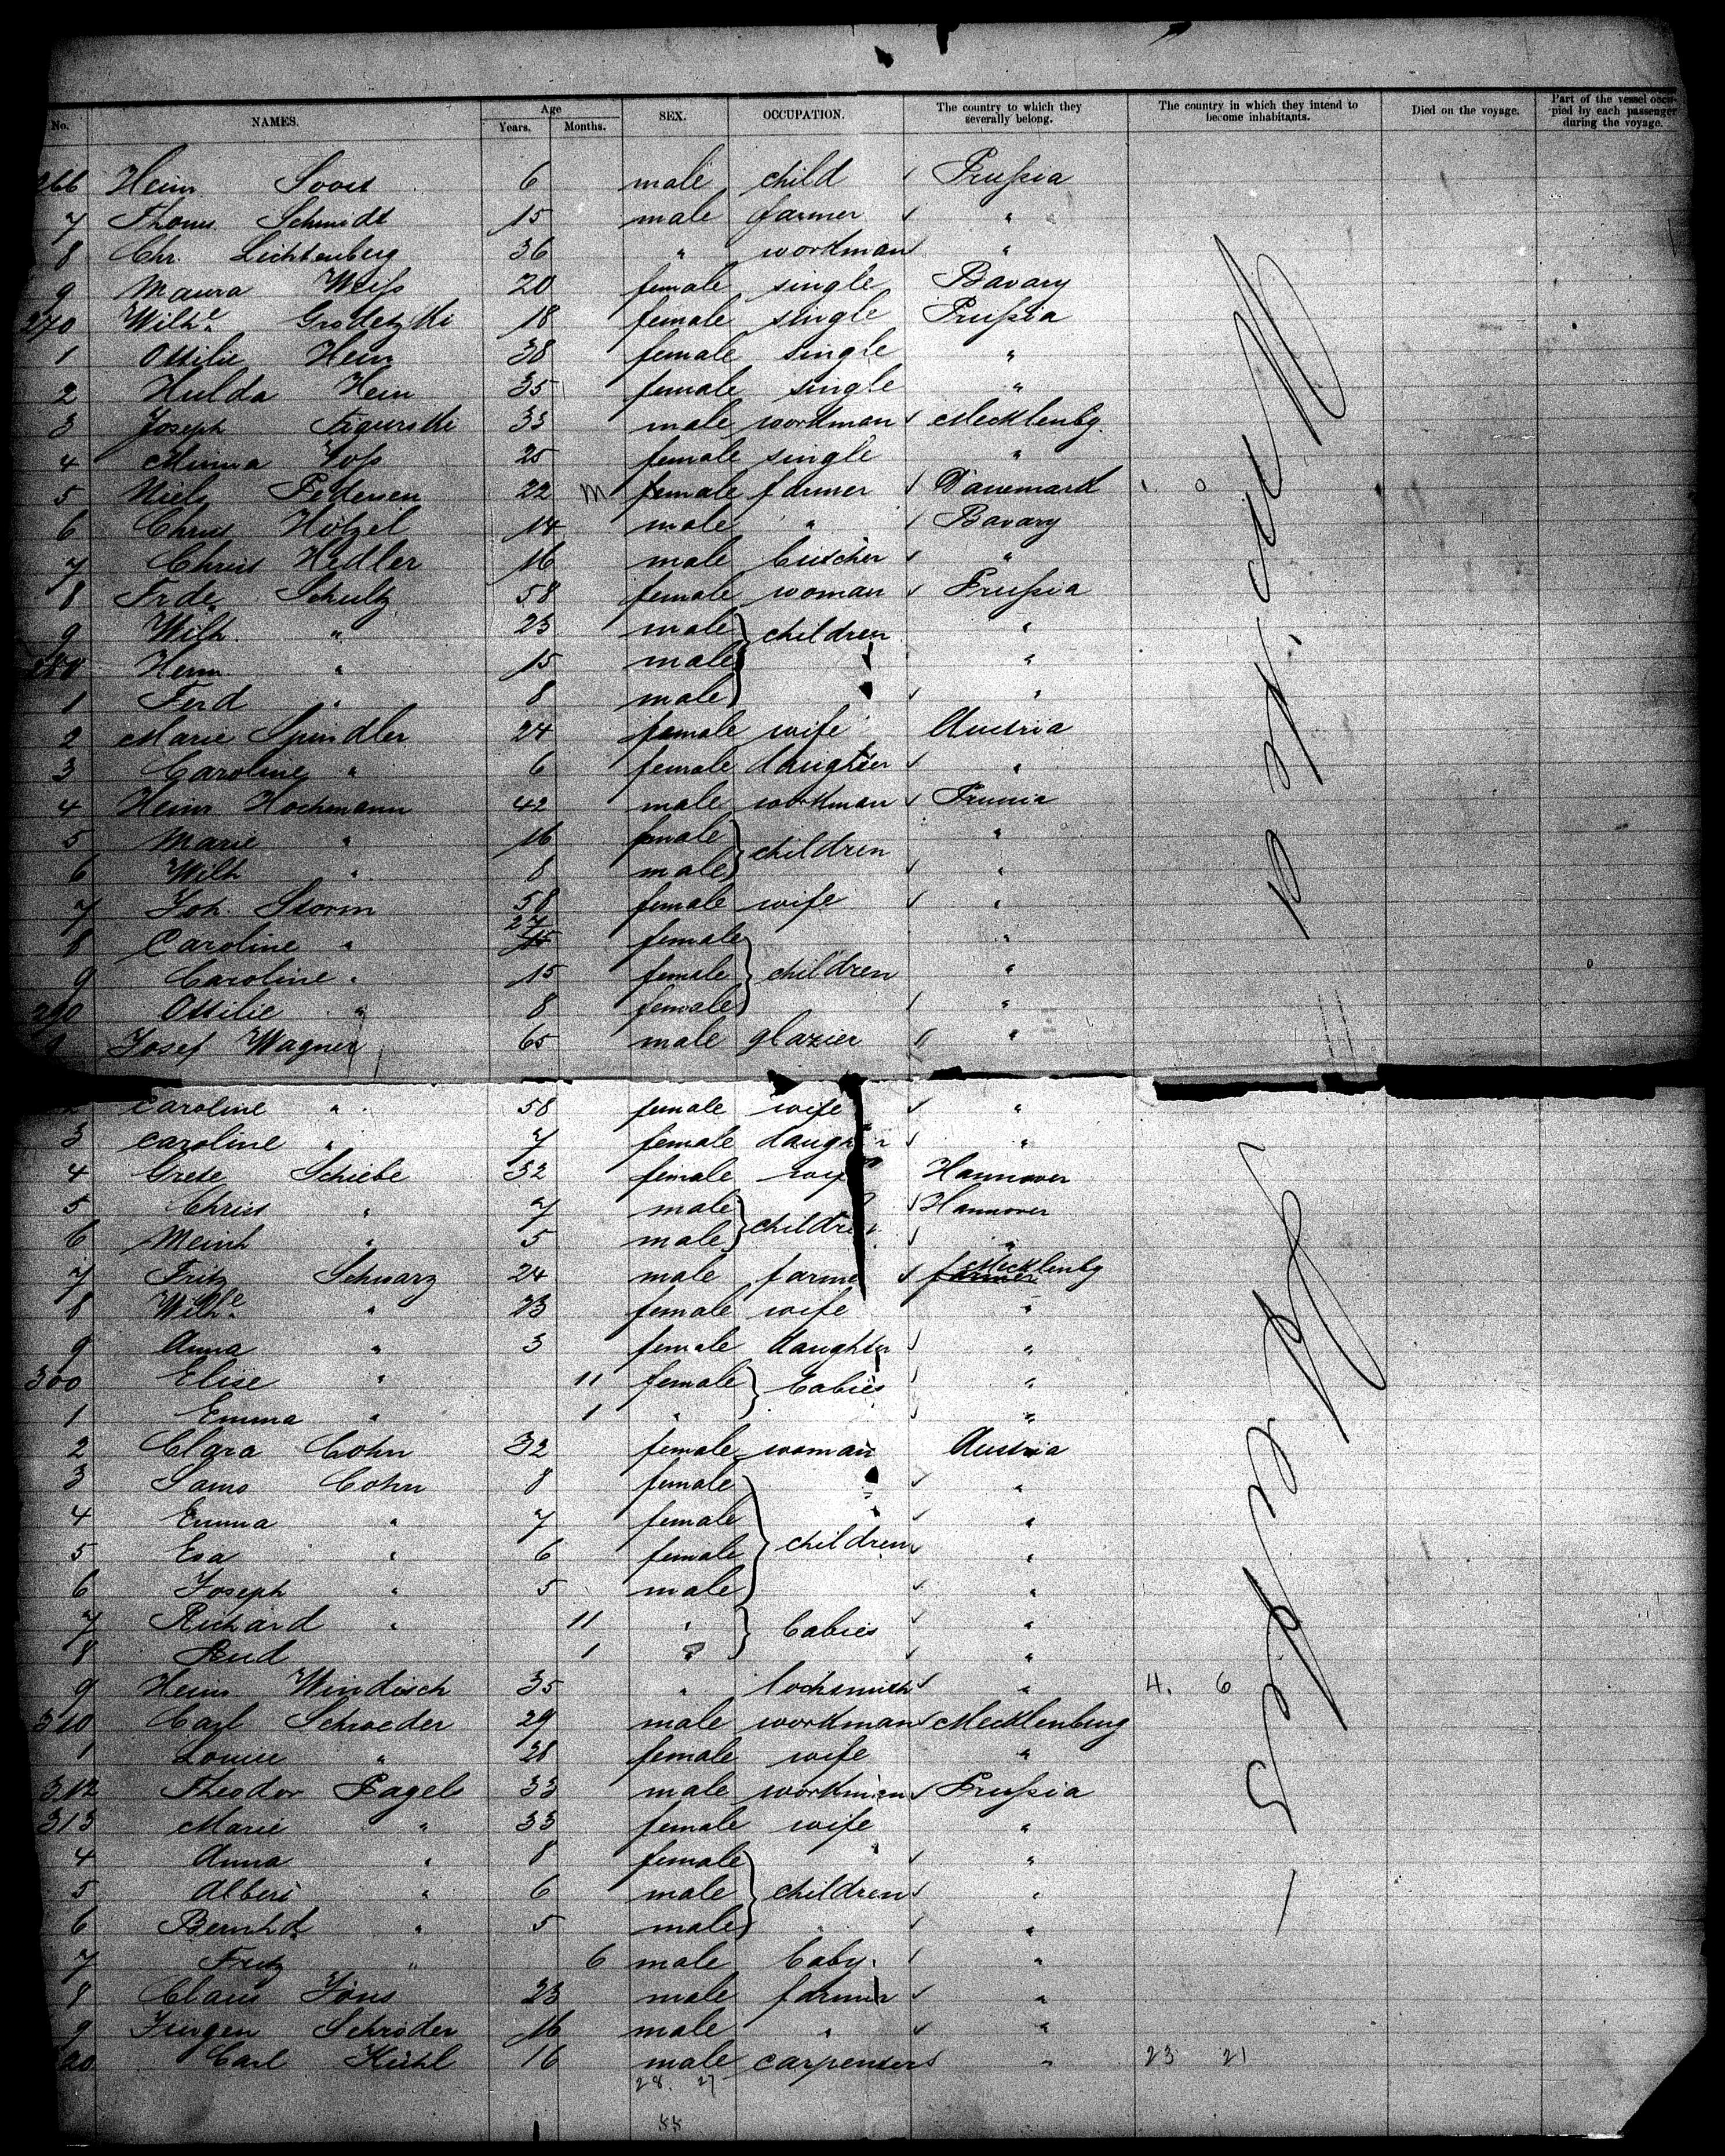 No. NAMES. Age Years. Months. SEX. OCCUPATION. The country to which they severally belong. The country in which they intend to become inhabitants. Died on the voyage. Part of the vessel occupied by each passenger during the voyage.
266 Heinr Soost 6 male child Prußia
7 Thoms. Schmidt 15 male farmer "
8 Chr. Lichtenberg 36 " workman "
9 Maura Weiß 20 female single Bavary
270 Wilhe. Grodetzki 18 female single Prußia
1 Ottilie Hein 38 female single "
2 Hulda Hein 35 female single "
3 Joseph Figurski 33 male workman Mecklenbg.
4 Minna Voß 25 female single "
5 Niels Petersen 22 M female farmer Danemark 1. 0
6 Christ Hötzel 14 male " Bavary
7 Christ Hedler 16 male butcher "
8 Frde. Schultz 58 female woman Prußia
9 Wilh. " 23 male children "
280 Herm. " 15 male "
1 Ferd " 8 male "
2 Marie Spindler 24 female wife Austria
3 Caroline " 6 female daughter "
4 Heinr Hochmann 42 male workman Prussia
5 Marie " 16 female children "
6 Wilh " 8 male "
7 Joh. Storm 58 female wife "
8 Caroline " 27 15 female "
9 Caroline " 15 female children "
290 Ottilie " 8 female "
Josef Wagner 65 male glazier "
2 Caroline " 58 female wife "
3 Caroline " 7 female daughter "
4 Grete Schiebe 32 female wife Hannover
5 Christ " 7 male children Hannover
6 Meinh " 5 male "
7 Fritz Schwarz 24 male farmer farmer Mecklenbg
8 Wilhe. " 23 female wife "
9 Anna " 3 female daughter "
300 Elise " 11 female babies "
1 Emma " 1 " "
2 Clara Cohn 32 female woman Austria
3 Samo Cohn 8 female "
4 Emma " 7 female "
5 Esa " 6 female children "
6 Joseph " 5 male "
7 Richard " 11 " babies "
8 1 " "
9 Heinr. Windisch 35 " locksmith " 4. 6
310 Carl Schroeder 29 male workman Mecklenburg
1 Louise " 28 female wife "
312 Theodor Pagels 33 male workman Prußia
313 Marie " 33 female wife "
4 Anna " 8 female "
5 Albert " 6 male children "
6 Bernhd. " 5 male "
7 Fritz " 6 male baby. "
8 Claus Jöns 23 male farmer "
9 Jürgen Schröder 16 male " "
320 Carl Kühl 16 male carpenter " 23 21
28. 27
55